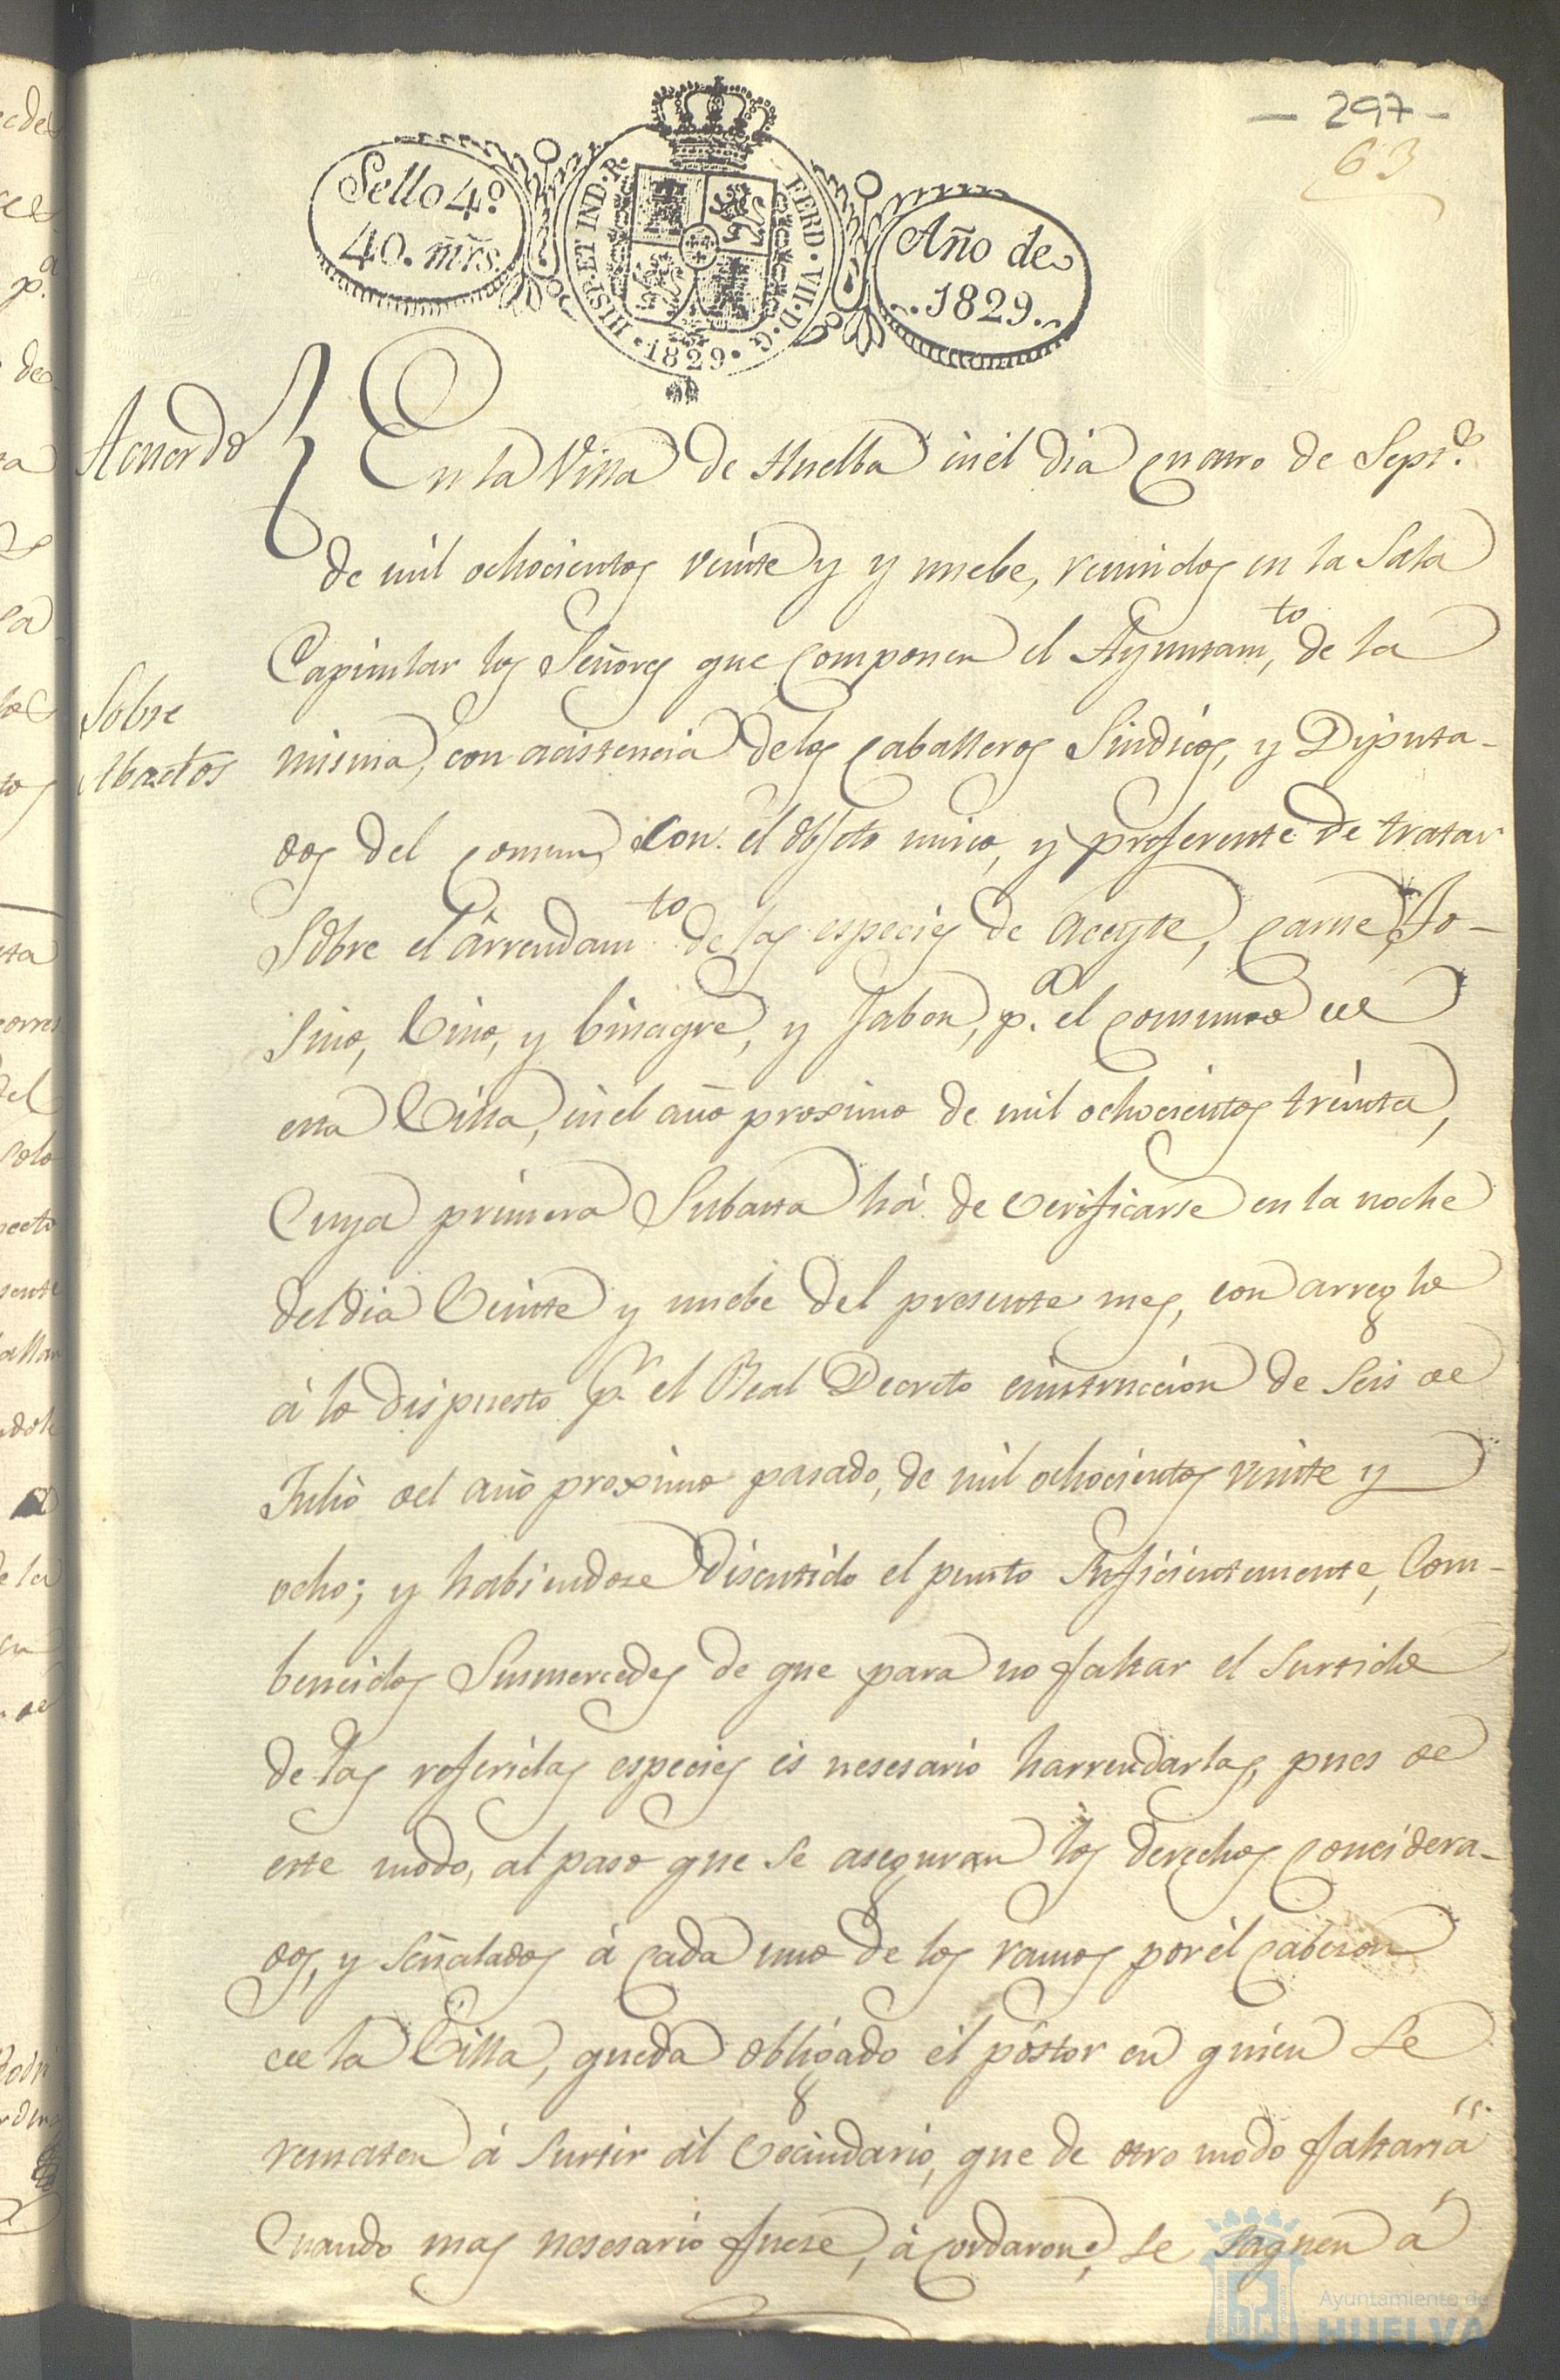 - 297 -
63
Sello 4º
40. mrs.
HISP. ET IND. R.
FERD. VII. D. G.
· 1829 ·
Año de
1829.
Acuerdo
En la Villa de Huelba en el dia cuatro de Sepre.
de mil ochocientos veinte y y nuebe, reunidos en la Sala
Capitular los Señores que componen el Ayuntamto, de la
Sobre
Abactos
misma, con acistencia de los Caballeros Sindicos, y Diputa-
dos del comun, con el objeto unico, y preferente de tratar
Sobre el Arrendamto de las especies de Aceyte, Carne, To-
sino, Vino, y binagre, y Jabon, pa. el comun de
esta Villa, en el año proximo de mil ochocientos treinta,
Cuya primera Subasta há de verificarse en la noche
del dia Veinte y nuebe del presente mes, con arreglo
á lo dispuesto pr. el Real Decreto é instruccion de seis de
Julio del año proximo pasado, de mil ochocientos veinte y
ocho; y habiendose discutido el punto suficientemente, Com-
bencidos Susmercedes de que para no faltar el surtido
de las referidas especies es nesesario harrendarlas, pues de
este modo, al paso que se aseguran los derechos concidera-
dos, y señalados á cada uno de los ramos por él Cabeson
de la Villa, queda obligado él postor en quien se
rematen á surtir ál Vecindario, que de otro modo faltaria
Cuando mas nesesario fuese, ácordaron, se saquen á
Ayuntamiento de
HUELVA